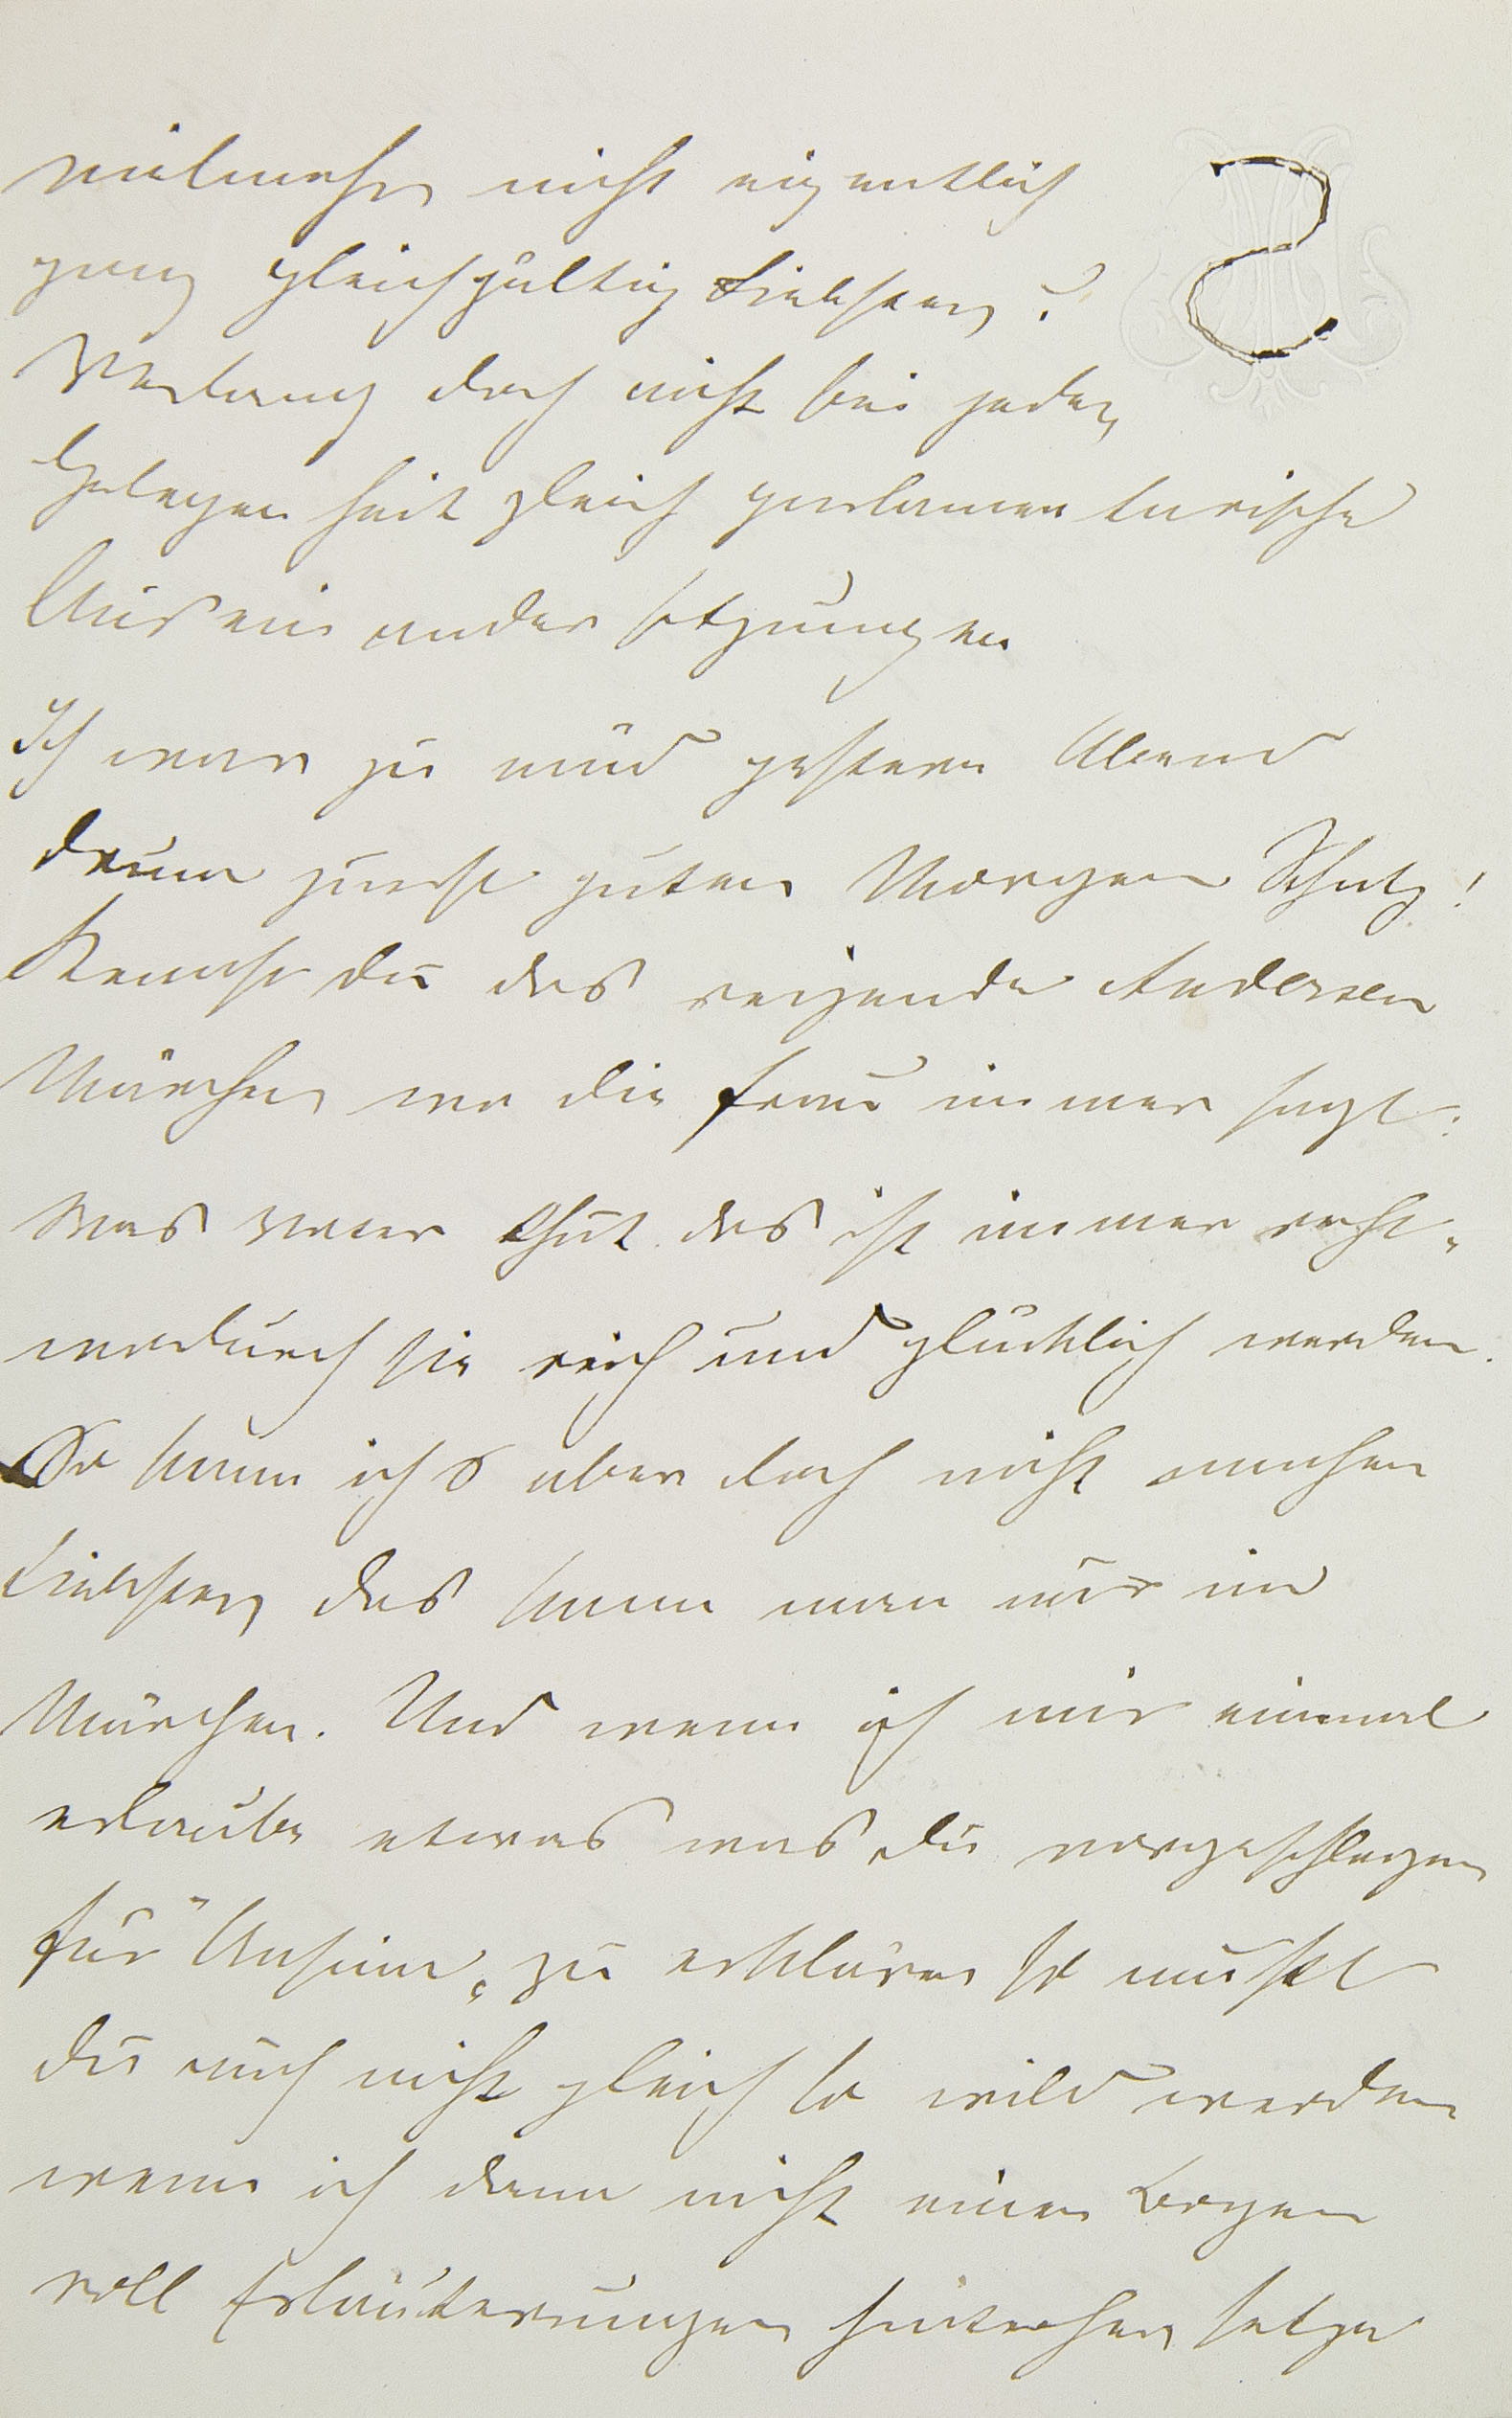 vielmehr nicht eigentlich
ganz gleichgültig Liebster?
Verlang doch nicht bei jeder
Gelegenheit gleich parlamentarische
Auseinandersetzungen
Ich war zu müd gestern Abend
drum zuerst guten Morgen Schatz!
Kennst du das reizende Andersen
Märchen wo die Frau immer sagt:
Was Vater thut das ist immer recht"
wodurch sie reich und glücklich werden.
So kann ichs aber doch nicht machen
Liebster das kann man nur im
Märchen. Und wenn ich mir einmal
erlaube etwas was du vorgeschlagen
für "Unsinn" zu erklären so mußt
du auch nicht gleich so wild werden
wenn ich dann nicht einen Bogen
voll Erläuterungen hinterher setze